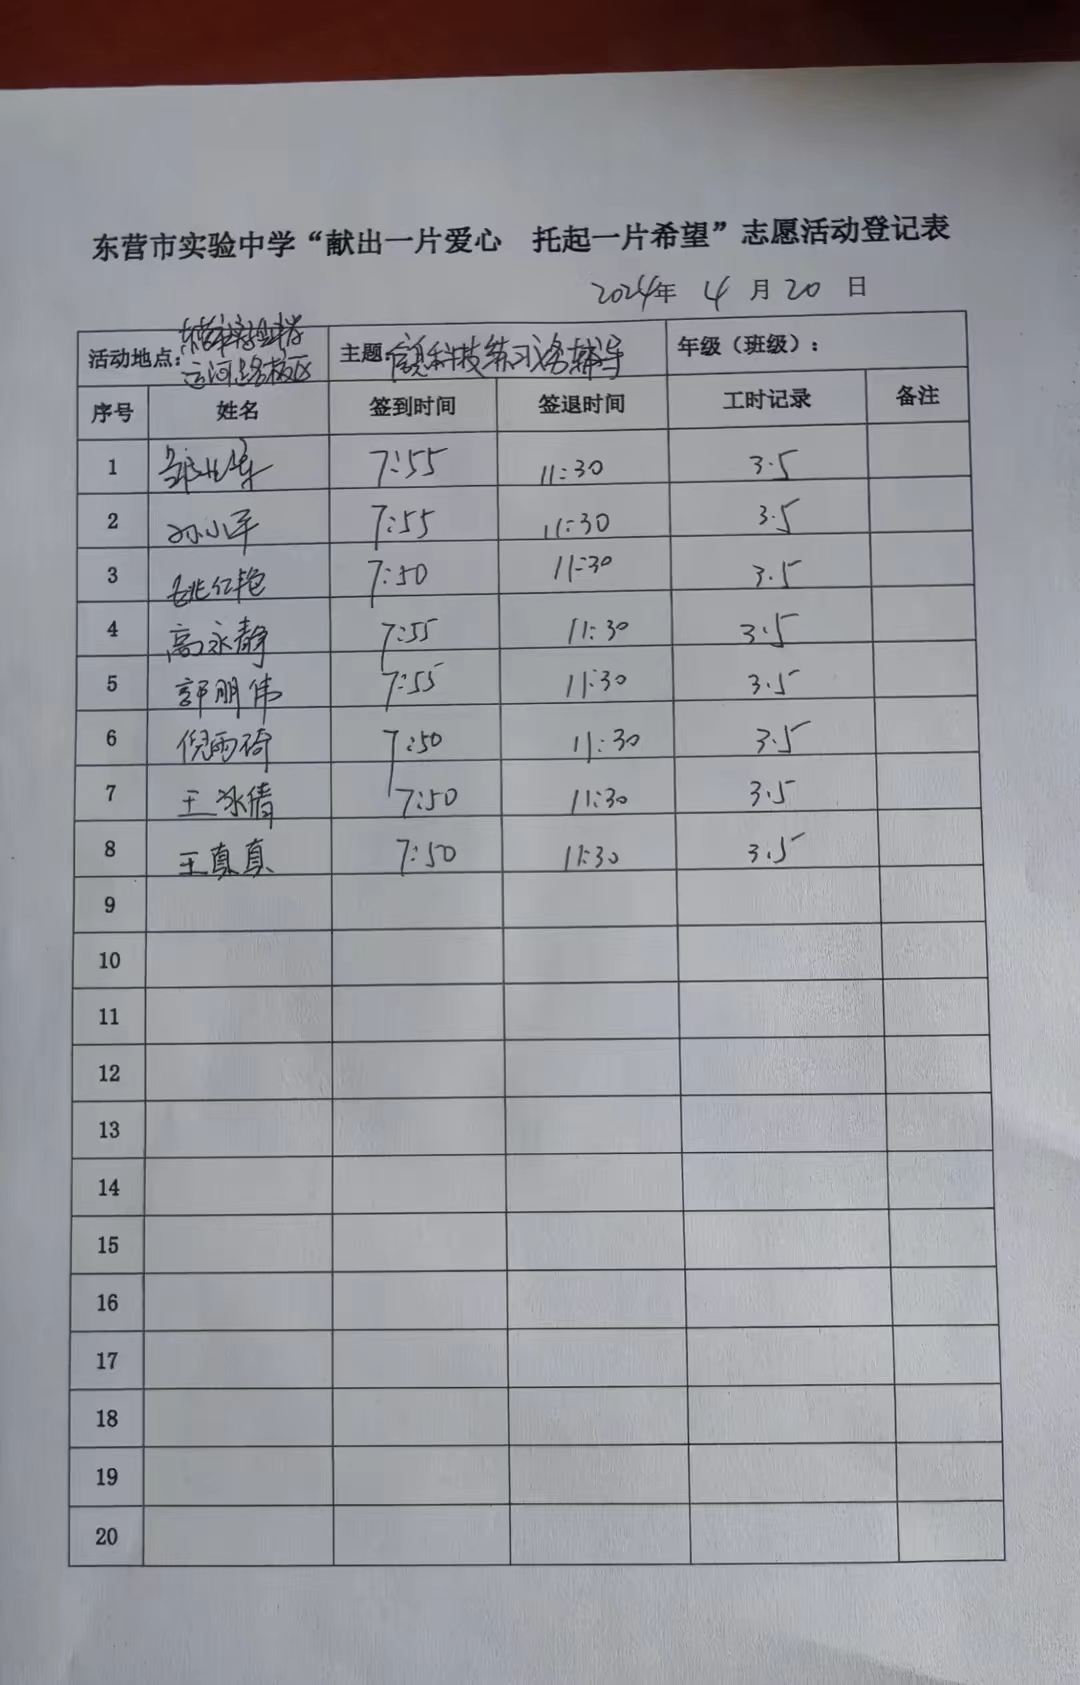 东营市实验中学“献出一片爱心 托起一片希望”志愿活动登记表
2024年 4 月 20 日
活动地点：东营市实验中学运河路校区 主题：信息科技练习 辅导 年级（班级）：
序号 姓名 签到时间 签退时间 工时记录 备注
1 7:55 11:30 3.5
2 孙小军 7:55 11:30 3.5
3 姚红艳 7:50 11:30 3.5
4 高永静 7:55 11:30 3.5
5 郭朋伟 7:55 11:30 3.5
6 倪雨琦 7:50 11:30 3.5
7 王冰倩 7:50 11:30 3.5
8 王真真 7:50 11:30 3.5
9
10
11
12
13
14
15
16
17
18
19
20